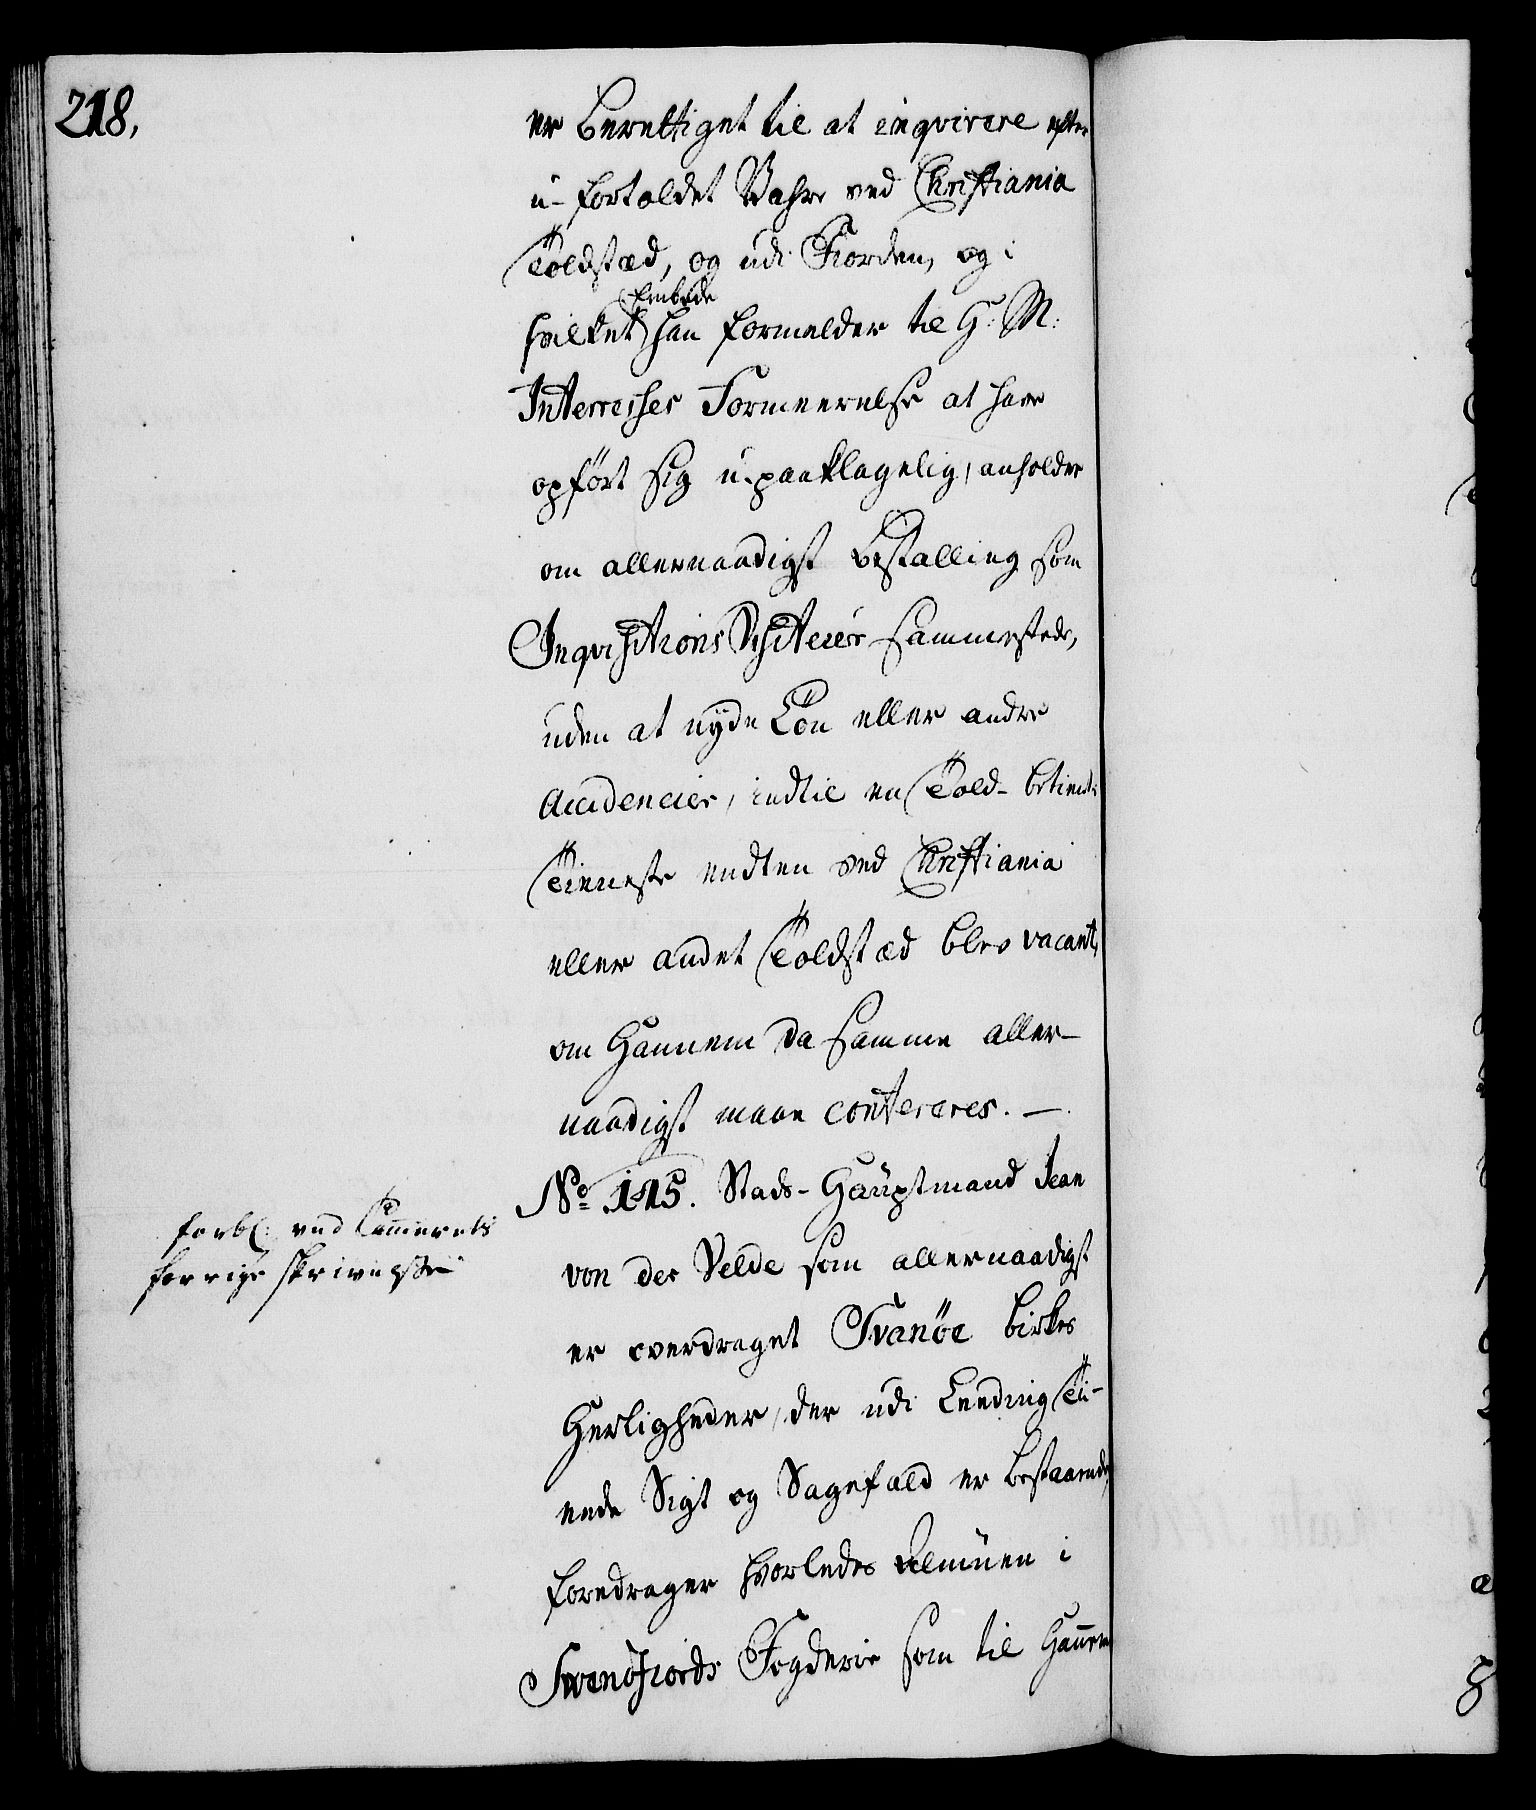 218,
er berettiget til at inqvirere efter
u-fortoldet Vahre ved Christiania
Toldstæd, og udi Fiorden, og i
hvilket Embede han formelder til H: M:
Interresses Formeerelse at have
opført sig u-paaklagelig, anholder
om allernaadigst bestalling som
Inqvisitions Visiteur sammesteds,
uden at nyde Løn eller andre
Accidencier, indtil en Told-betient
Tieneste endten ved Christiania
eller andet Toldstæd blev vacant,
om Hannem da samme aller-
naadigst maae confereres. —
No 145. Stads-Hauptmand Jean
von der Velde som allernaadigst
er overdraget Svanøe birkes
Herligheder, der udi Leeding Ti-
ende Sigt og Sagefald er bestaaende,
foredrager hvorledes Almuen i
Søndfiords Fogderie som til Hannem
forbl: ved Cammerets
forrige skrivelse